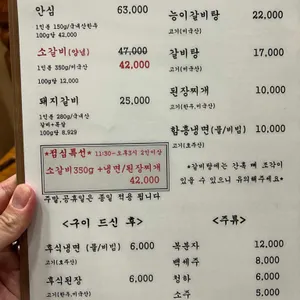 안심 63,000
1인분 150g/국내산한우
100g당 42,000
소갈비(양념) 47,000
1인분 350g/미국산 42,000
100g당 12,000
돼지갈비 25,000
1인분 280g/국내산
갈비+목살
100g당 8,929
*점심특선* 11:30~오후3시 2인이상
소갈비350g +냉면/된장찌개
42,000
주말,공휴일은 종일 적용 됩니다
능이갈비탕 22,000
고기(미국산)
갈비탕 17,000
고기(미국산)
된장찌개 10,000
고기(한우,미국산)
함흥냉면(물/비빔) 10,000
고기(호주산)
*갈비탕에는 간혹 뼈 조각이
있을 수 있으니 유의해주세요*
<구이 드신 후>
후식냉면 (물/비빔) 6,000
고기(호주산)
후식된장 6,000
고기(한우,미국산)
<주류>
복분자 12,000
백세주 8,000
청하 6,000
소주 5,000